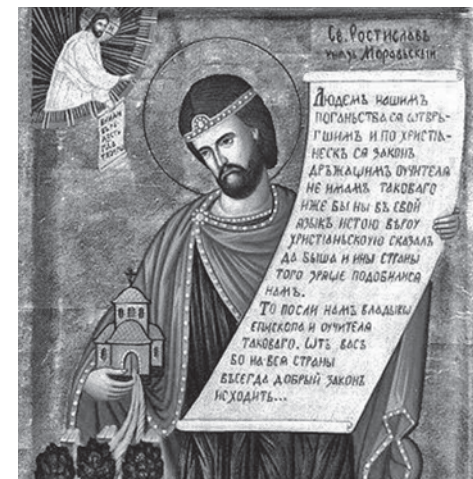 Св. Ростиславъ
князь Моравьский
Людемъ нашимъ
поганьства ся ѿтвръ-
гшимъ и по христіа-
нескъ ся законъ
дръжащимъ оучителя
не имамъ таковаго
иже бы ны въ свой
языкъ истою вѣроу
христіаньскоую сказалъ
да быша и ины страны
того зряще подобилися
намъ.
То посли намъ владыкы
епископа и оучителя
таковаго. Ѿтъ васъ
бо на вся страны
въсегда добрый законъ
исходить...